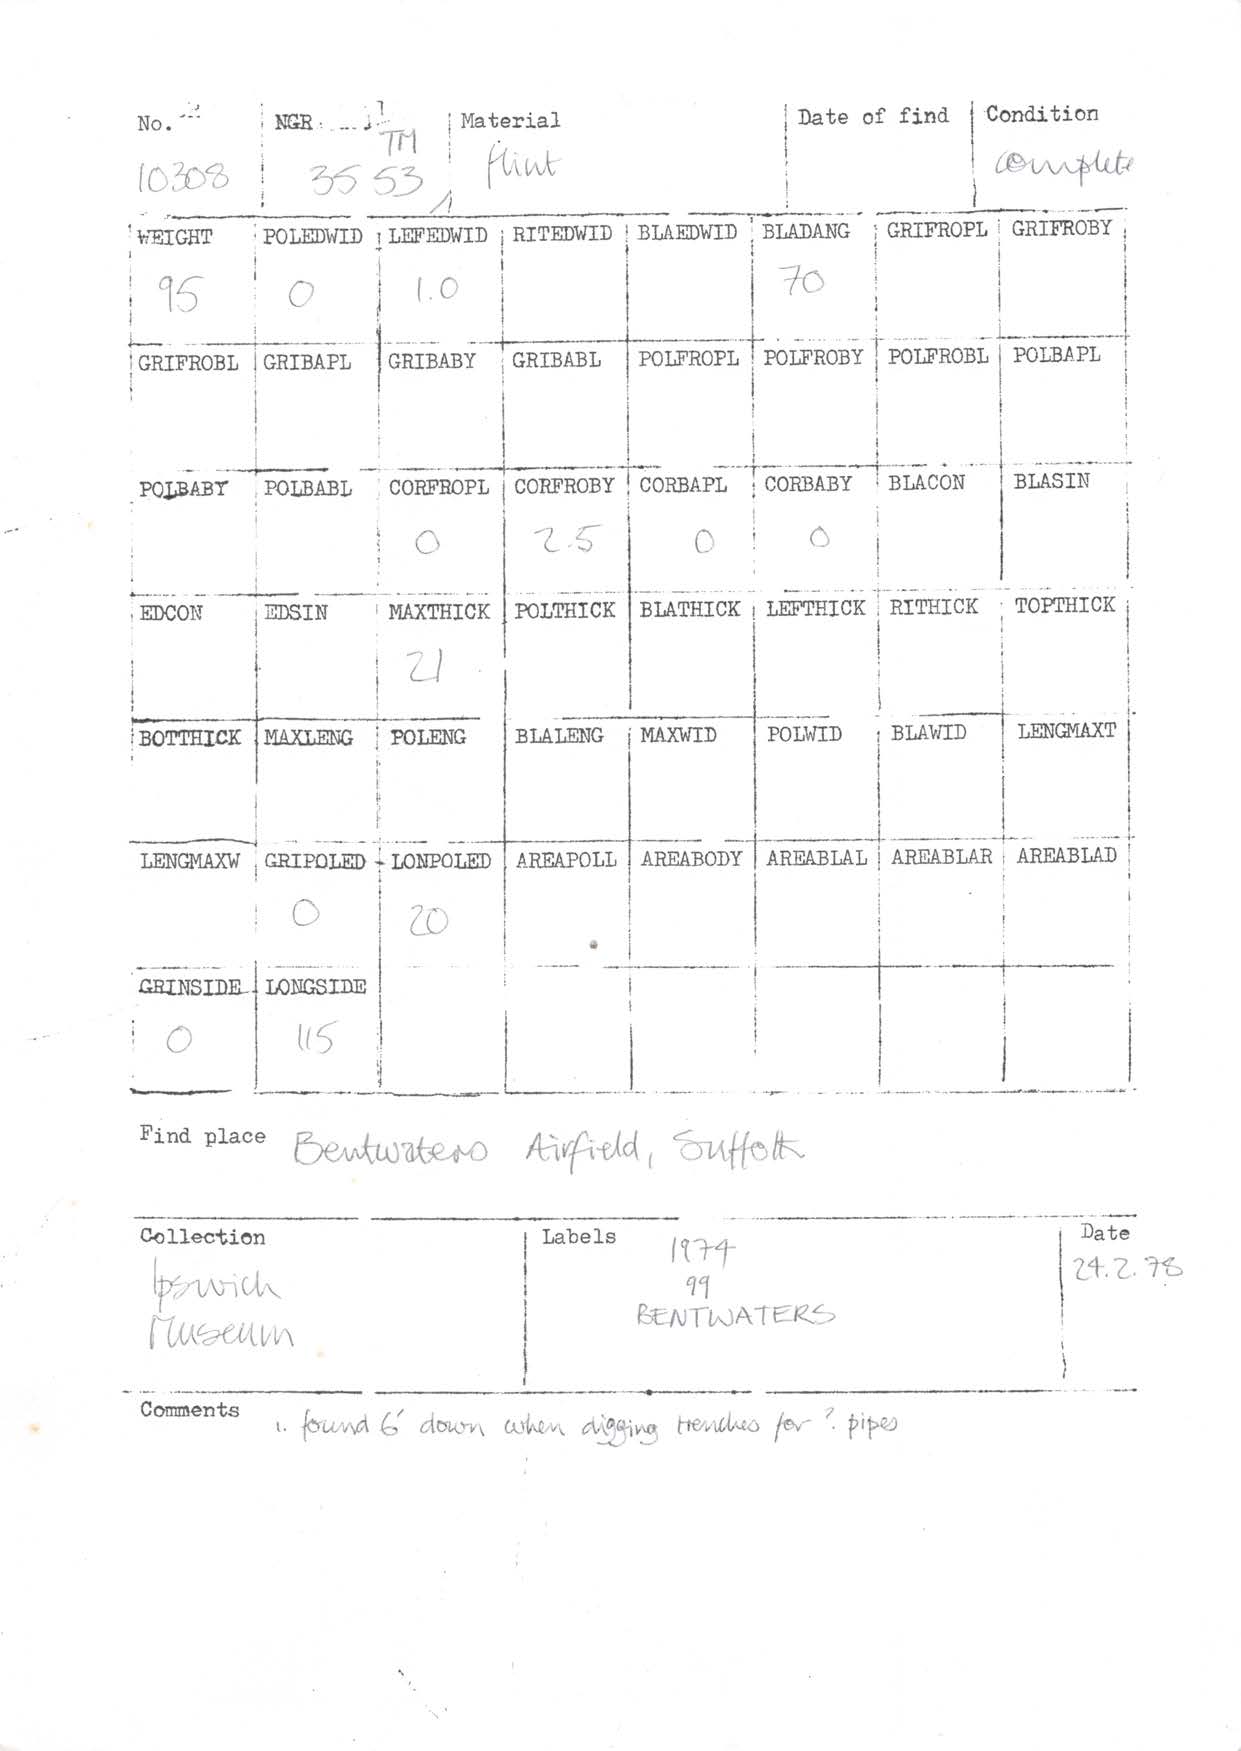 No. NGR Material Date of find Condition
10308 TM 35 53 flint complete
WEIGHT POLEDWID LEFEDWID RITEDWID BLAEDWID BLADANG GRIFROPL GRIFROBY
95 0 1.0 70
GRIFROBL GRIBAPL GRIBABY GRIBABL POLFROPL POLFROBY POLFROBL POLBAPL
POLBABY POLBABL CORFROPL CORFROBY CORBAPL CORBABY BLACON BLASIN
0 2.5 0 0
EDCON EDSIN MAXTHICK POLTHICK BLATHICK LEFTHICK RITHICK TOPTHICK
21
BOTTHICK MAXLENG POLENG BLALENG MAXWID POLWID BLAWID LENGMAXT
LENGMAXW GRIPOLED LONPOLED AREAPOLL AREABODY AREABLAL AREABLAR AREABLAD
0 20
GRINSIDE LONGSIDE
0 115
Find place Bentwaters Airfield, Suffolk
Collection Labels Date
Ipswich 1974 24.2.78
Museum 99
BENTWATERS
Comments 1. found 6' down when digging trenches for ?. pipes